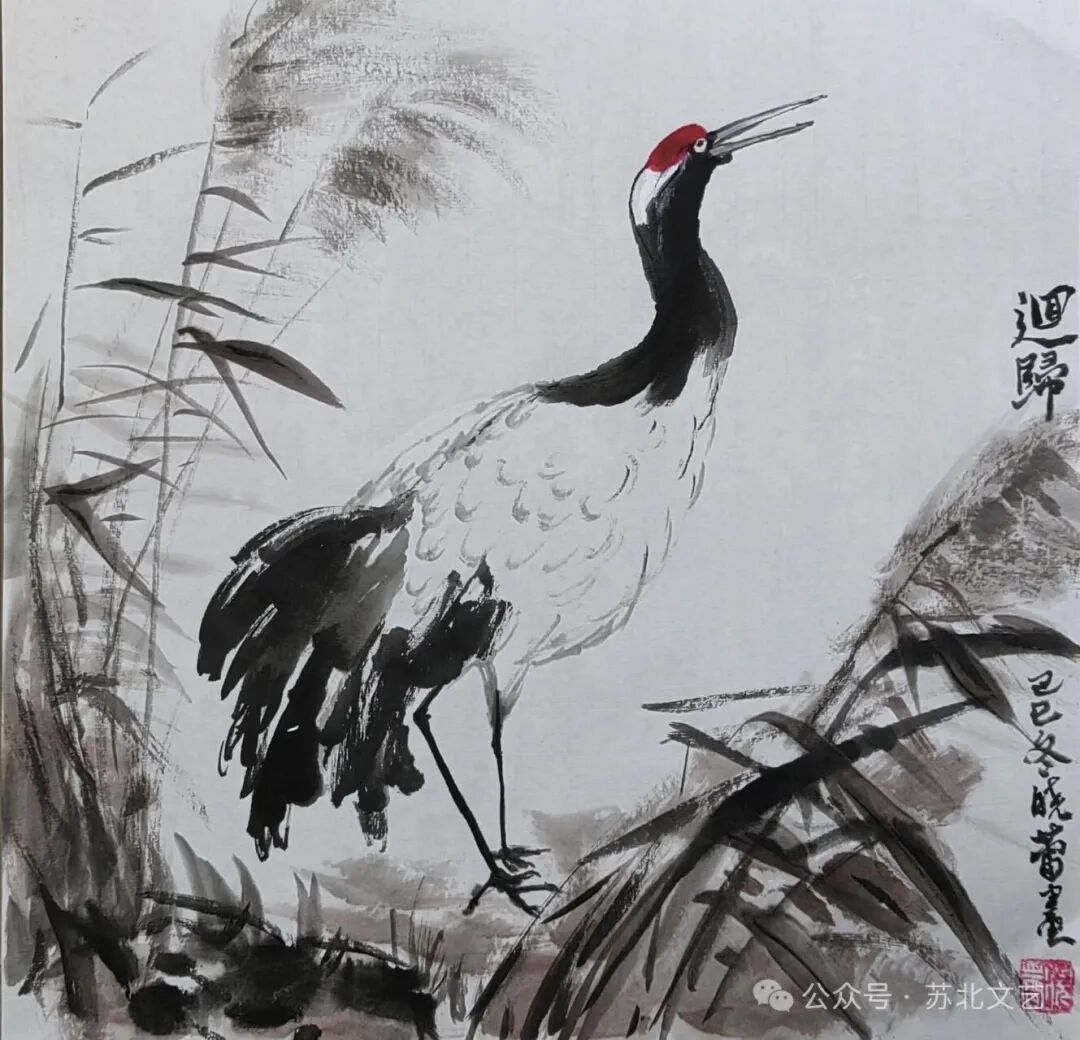 迴歸
己巳冬晓蕾画
公众号·苏北文艺